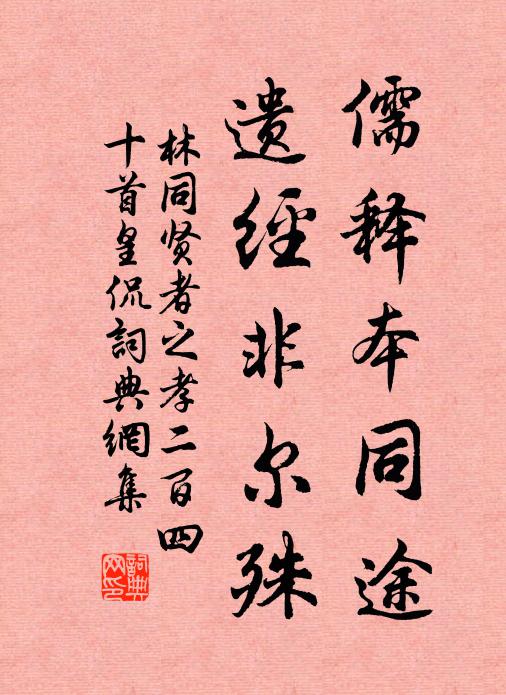 儒释本同途
遗經非尔殊
林同贤者之孝二百四
十首皇侃詞典網集
詞典
网印